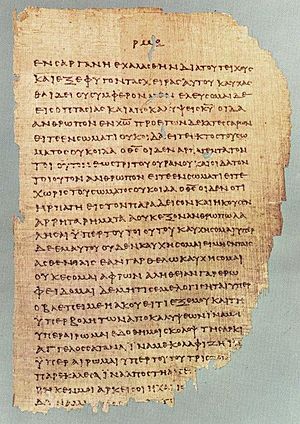 ΕΝ ϹΑΡΓΑΝΗ ΕΧΑΛΑϹΘΗΝ ΔΙΑ ΤΟΥ ΤΕΙΧΟΥϹ
ΚΑΙ ΕΞΕΦΥΓΟΝ ΤΑϹ ΧΕΙΡΑϹ ΑΥΤΟΥ ΚΑΥΧΑϹ
ΘΑΙ ΔΕΙ ΟΥ ϹΥΜΦΕΡΟΝ ΜΕΝ ΕΛΕΥϹΟΜΑΙ ΔΕ
ΕΙϹ ΟΠΤΑϹΙΑϹ ΚΑΙ ΑΠΟΚΑΛΥΨΕΙϹ Κ̅Υ̅ ΟΙΔΑ
ΑΝΘΡΩΠΟΝ ΕΝ Χ̅Ω̅ ΠΡΟ ΕΤΩΝ ΔΕΚΑΤΕϹϹΑΡΩΝ
ΕΙΤΕ ΕΝ ϹΩΜΑΤΙ ΟΥΚ ΟΙΔΑ ΕΙΤΕ ΕΚΤΟϹ ΤΟΥ ϹΩ
ΜΑΤΟϹ ΟΥΚ ΟΙΔΑ Ο Θ̅Ϲ̅ ΟΙΔΕΝ ΑΡΠΑΓΕΝΤΑ ΤΟΝ
ΤΟΙΟΥΤΟΝ ΕΩϹ ΤΡΙΤΟΥ ΟΥΡΑΝΟΥ ΚΑΙ ΟΙΔΑ ΤΟΝ
ΤΟΙΟΥΤΟΝ ΑΝΘΡΩΠΟΝ ΕΙΤΕ ΕΝ ϹΩΜΑΤΙ ΕΙΤΕ
ΧΩΡΙϹ ΤΟΥ ϹΩΜΑΤΟϹ ΟΥΚ ΟΙΔΑ Ο Θ̅Ϲ̅ ΟΙΔΕΝ ΟΤΙ
ΗΡΠΑΓΗ ΕΙϹ ΤΟΝ ΠΑΡΑΔΕΙϹΟΝ ΚΑΙ ΗΚΟΥϹΕΝ
ΑΡΡΗΤΑ ΡΗΜΑΤΑ Α ΟΥΚ ΕΞΟΝ ΑΝΘΡΩΠΩ ΛΑ
ΛΗϹΑΙ ΥΠΕΡ ΤΟΥ ΤΟΙΟΥΤΟΥ ΚΑΥΧΗϹΟΜΑΙ ΥΠΕΡ
ΔΕ ΕΜΑΥΤΟΥ ΟΥΔΕΝ ΚΑΥΧΗϹΟΜΑΙ ΕΙ ΜΗ ΕΝ ΤΑΙϹ
ΑϹΘΕΝΕΙΑΙϹ ΕΑΝ ΓΑΡ ΘΕΛΩ ΚΑΥΧΗϹΟΜΑΙ
ΟΥΚ ΕϹΟΜΑΙ ΑΦΡΩΝ ΑΛΗΘΕΙΑΝ ΓΑΡ ΕΡΩ
ΦΕΙΔΟΜΑΙ ΔΕ ΜΗ ΤΙϹ ΕΜΕ ΛΟΓΙϹΗΤΑΙ ΥΠΕΡ
Ο ΒΛΕΠΕΙ ΜΕ Η ΑΚΟΥΕΙ ΤΙ ΕΞ ΕΜΟΥ ΚΑΙ ΤΗ
ΥΠΕΡΒΟΛΗ ΤΩΝ ΑΠΟΚΑΛΥΨΕΩΝ ΙΝΑ ΜΗ
ΥΠΕΡΑΙΡΩΜΑΙ ΕΔΟΘΗ ΜΟΙ ϹΚΟΛΟΨ ΤΗ ϹΑΡΚΙ
ΑΓΓΕΛΟϹ ϹΑΤΑΝΑ ΙΝΑ ΜΕ ΚΟΛΑΦΙΖΗ ΙΝΑ
ΥΠΕΡΑΙΡΩΜΑΙ ΥΠΕΡ ΤΟΥΤΟΥ ΤΡΙϹ
ΠΑΡΕΚΑΛΕϹΑ ΙΝΑ ΑΠΟϹΤΗ
ΚΕΝ ΜΟΙ ΑΡΚΕΙ ϹΟΙ Η ΧΑΡΙϹ